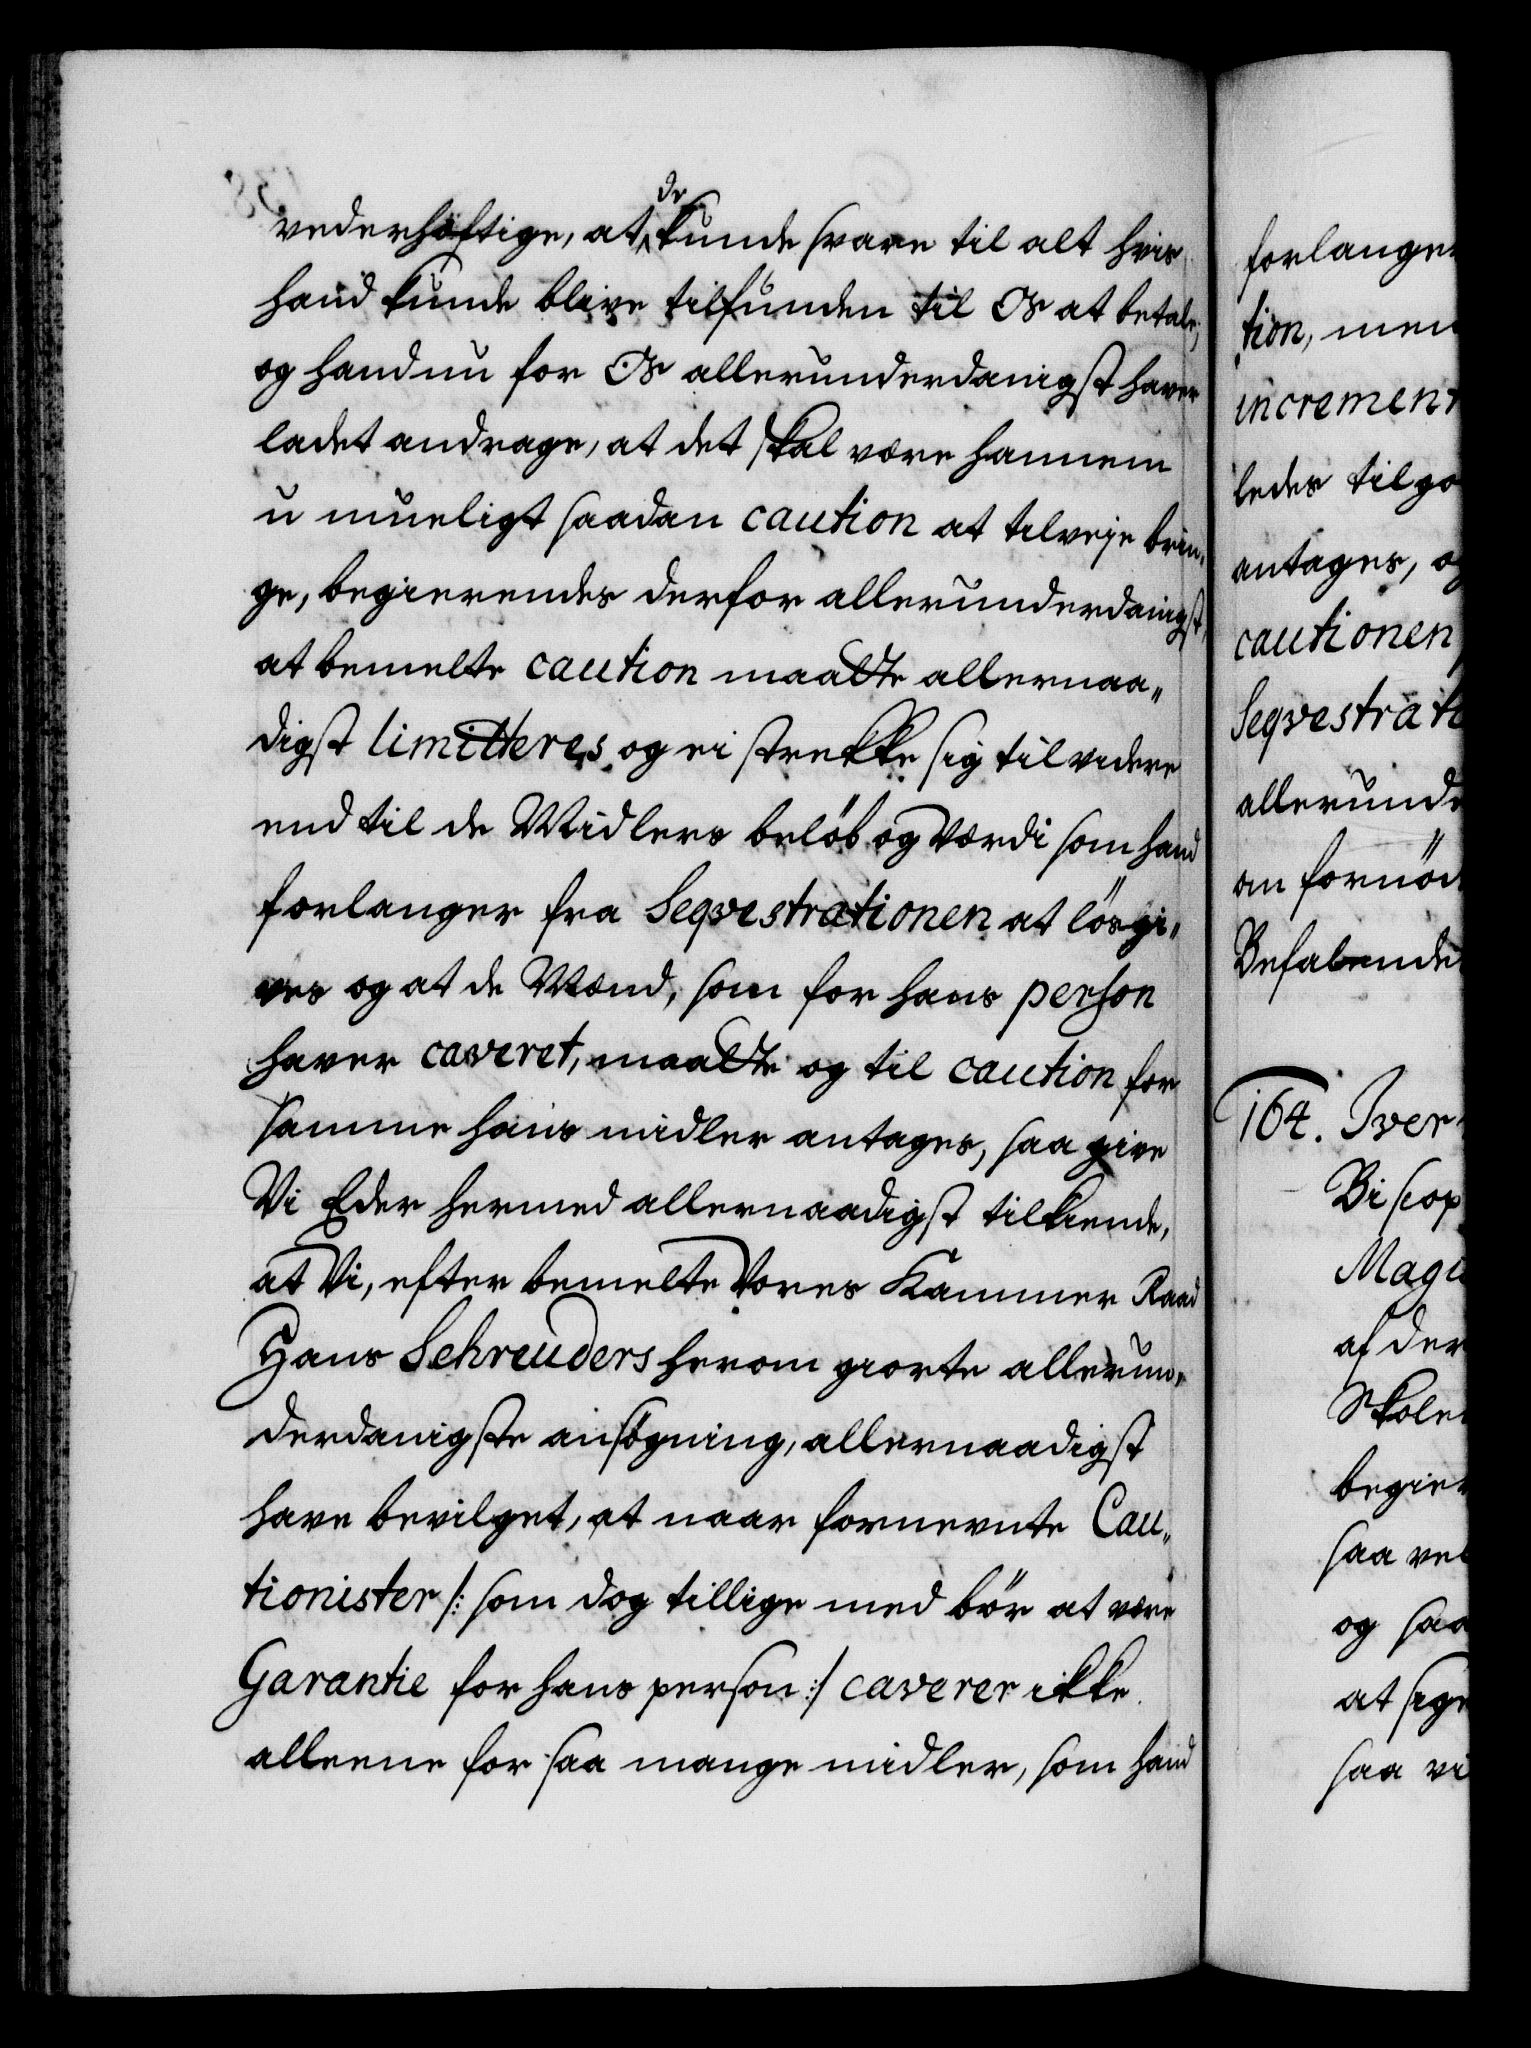 vederhæftige, at de kunde svare til alt hvis
hand kunde blive tilfunden til Os at betale,
og hand nu for Os allerunderdanigst haver
ladet andrage, at det skal være hannem
u mueligt saadan caution at tilveje brin,
ge, begierendes derfor allerunderdanigst,
at bemelte caution maatte allernaa,,
digst limitteres og ei strekke sig til videre
end til de Midlers beløb og værdi som hand
forlanger fra Seqvestrationen at løsgi,
ves og at de Mænd, som for hans person
haver caveret, maatte og til caution for
samme hans midler antages, saa give
Vi Eder hermed allernaadigst tilkiende,
at Vi, efter bemelte Vores Kammer Raad
Hans Schreuders herom giorte allerun,
derdanigste ansøgning, allernaadigst
have bevilget, at naar fornevnte Cau,,
tionister /: som dog tillige med bør at være
Garantie for hans person :/ caverer ikke
alleene for saa mange midler, som hand
forlanger
tion, men
increment
ledes tilgo
antages, og
cautionen
Seqvestrati
allerunde
om fornød
Befalende
164. Iver
Biscop
Magi
af der
Skole
begier
saa vel
og saa
at sige
saa vi